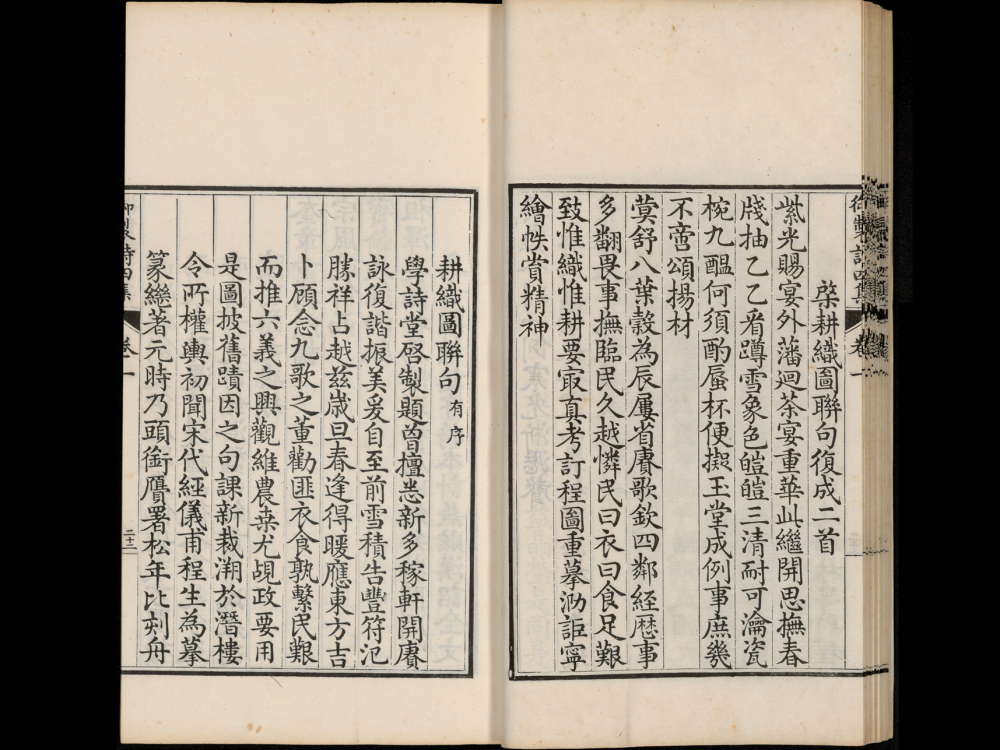 御製詩四集 卷一
耕織圖聯句復成二首
紫光賜宴外藩迴茶宴重華此繼開思撫春
牋抽乙乙看蹲雪象色皚皚三清耐可瀹瓷
椀九醞何須酌蜃杯便擬玉堂成例事庶幾
不啻頌揚材
蓂舒八葉穀為辰屢省賡歌欽四鄰経歴事
多翻畏事撫臨民久越憐民曰衣曰食足艱
致惟織惟耕要㝡真考訂程圖重摹泐詎寧
繪帙賞精神
耕織圖聯句有序
學詩堂啓製題曾擅悉新多稼軒開賡
詠復諧振美爰自至前雪積告豐符氾
勝祥占越茲歲旦春逢得暖應東方吉
卜顧念九歌之董勸匪衣食孰繫民艱
而推六義之興觀維農桒尤覘政要用
是圖披舊蹟因之句課新裁溯於潛樓
令所權輿初聞宋代經儀甫程生為摹
篆繼著元時乃頭銜贗署松年比剡舟
御製詩四集 卷一 三十三